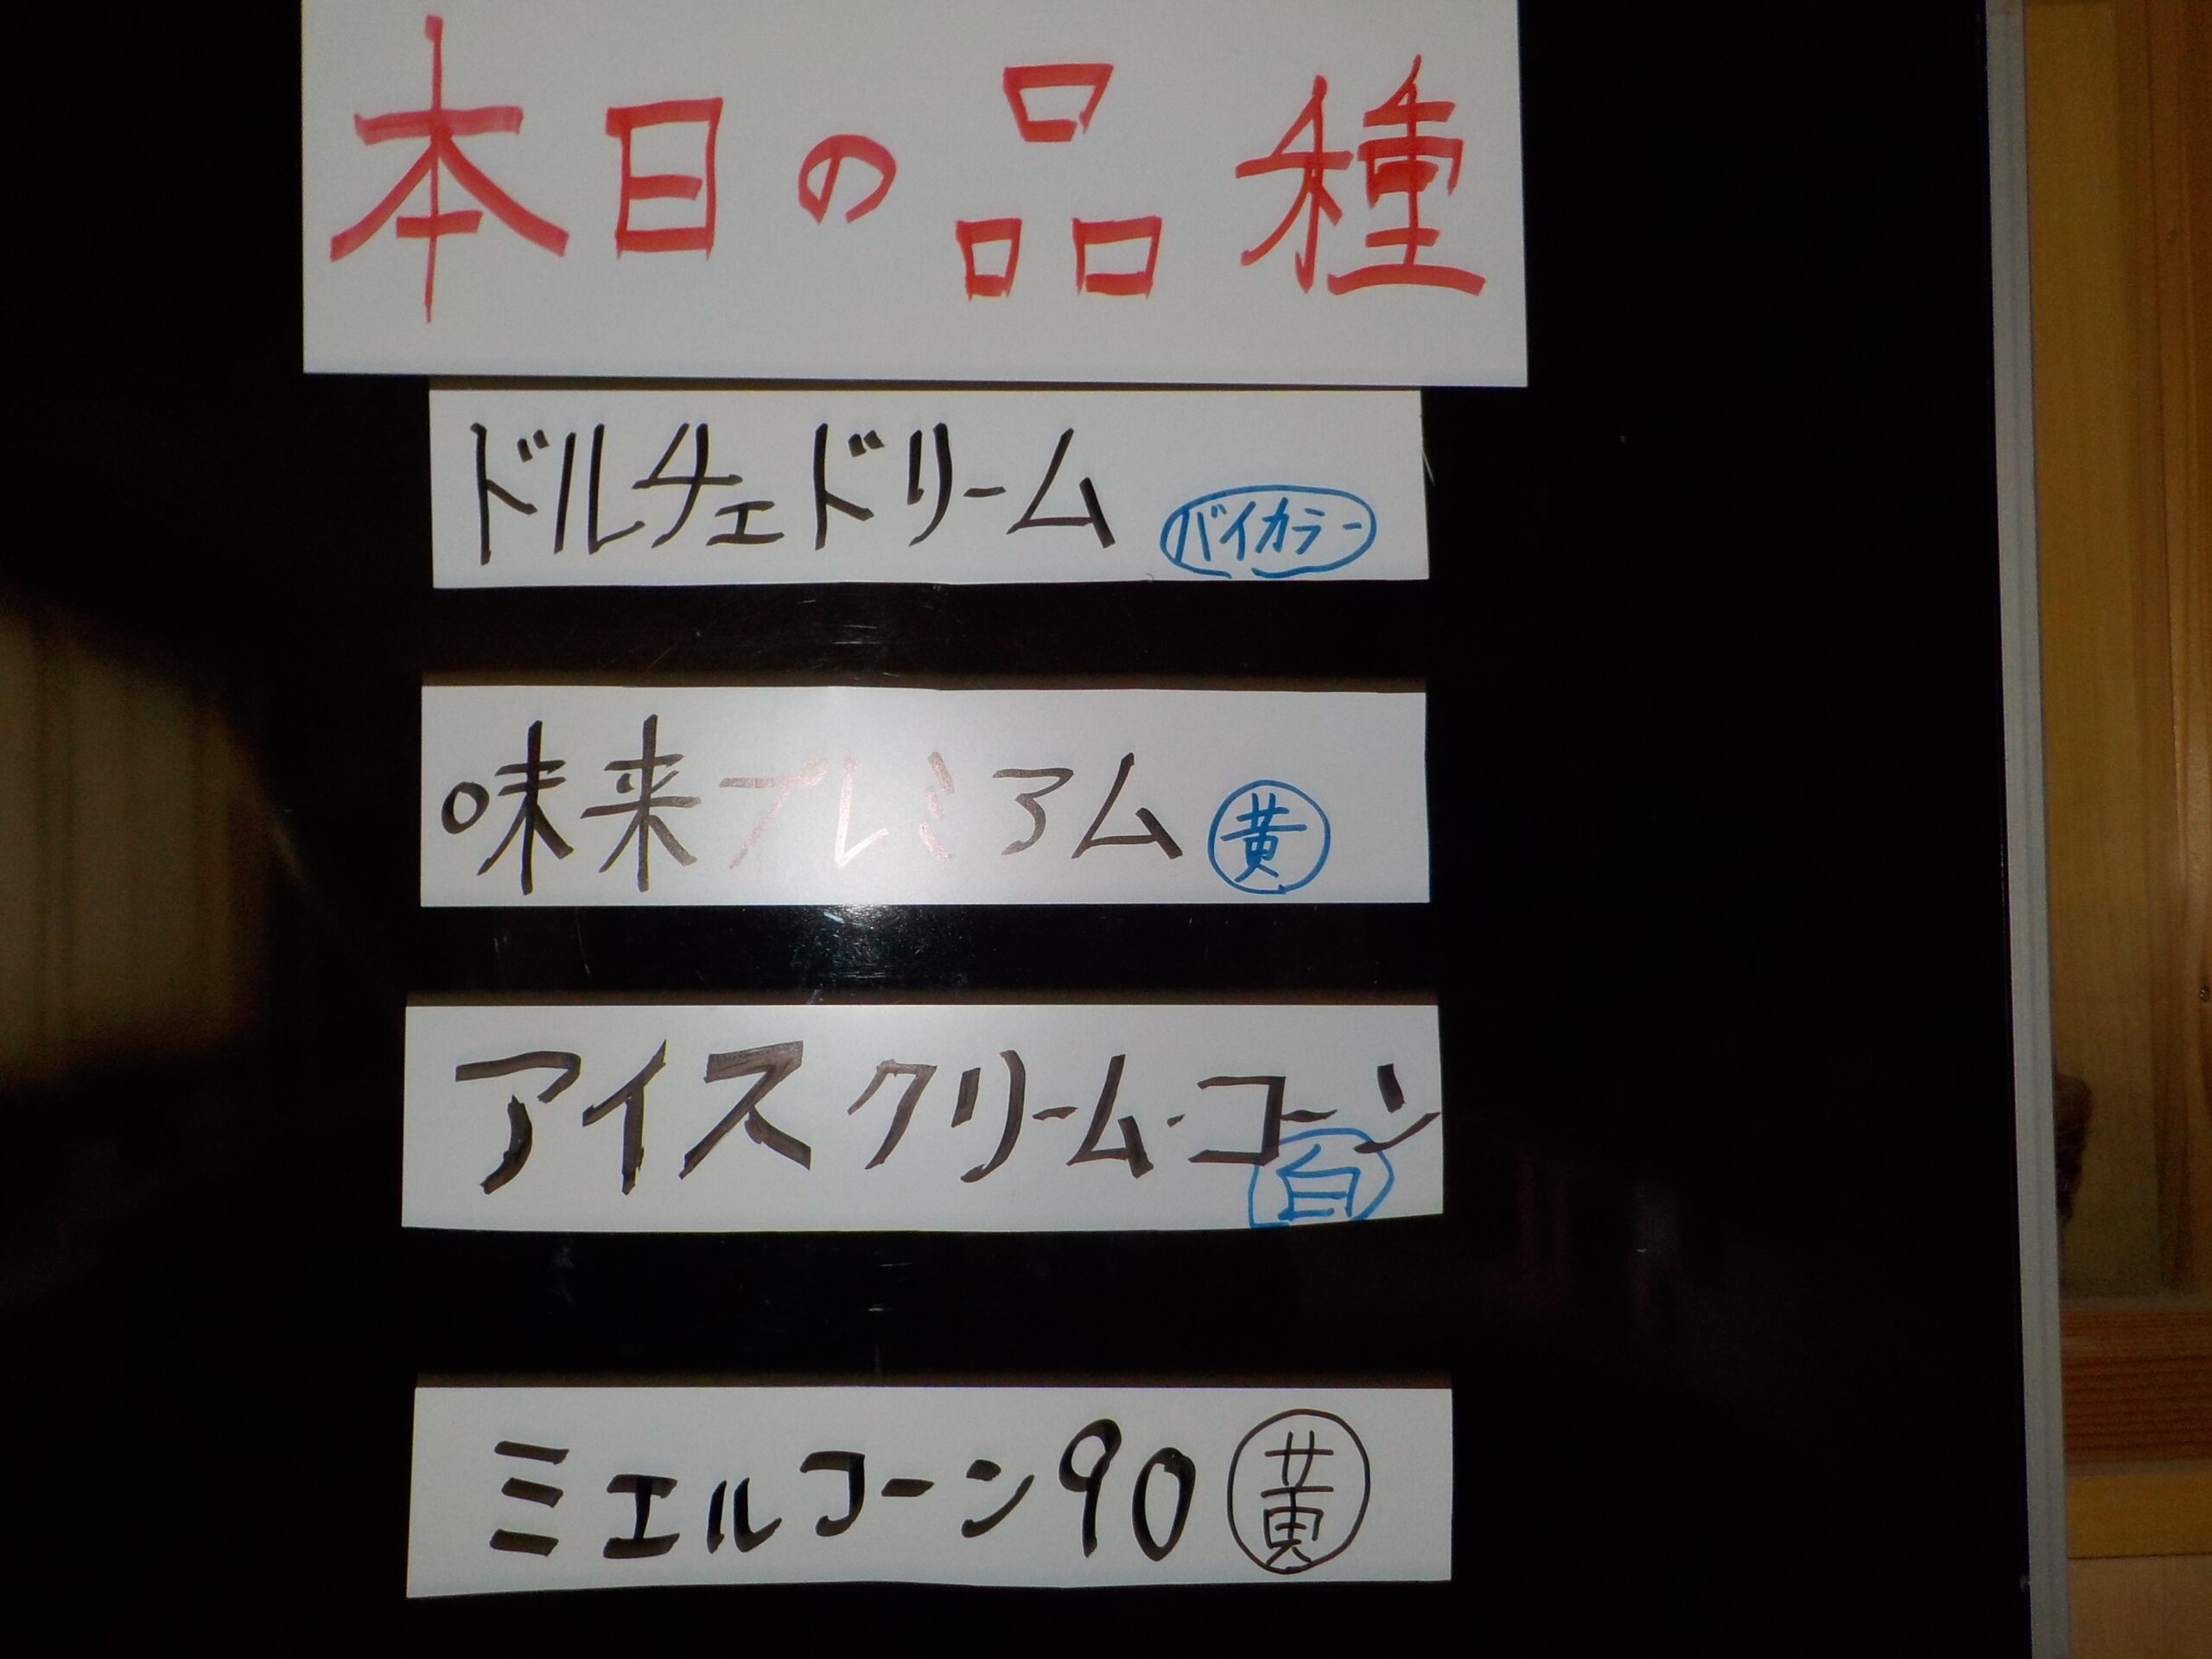 本日の品種
ドルチェドリーム バイカラー
味来プレミアム 黄
アイスクリーム・コーン 白
ミエルコーン90 黄